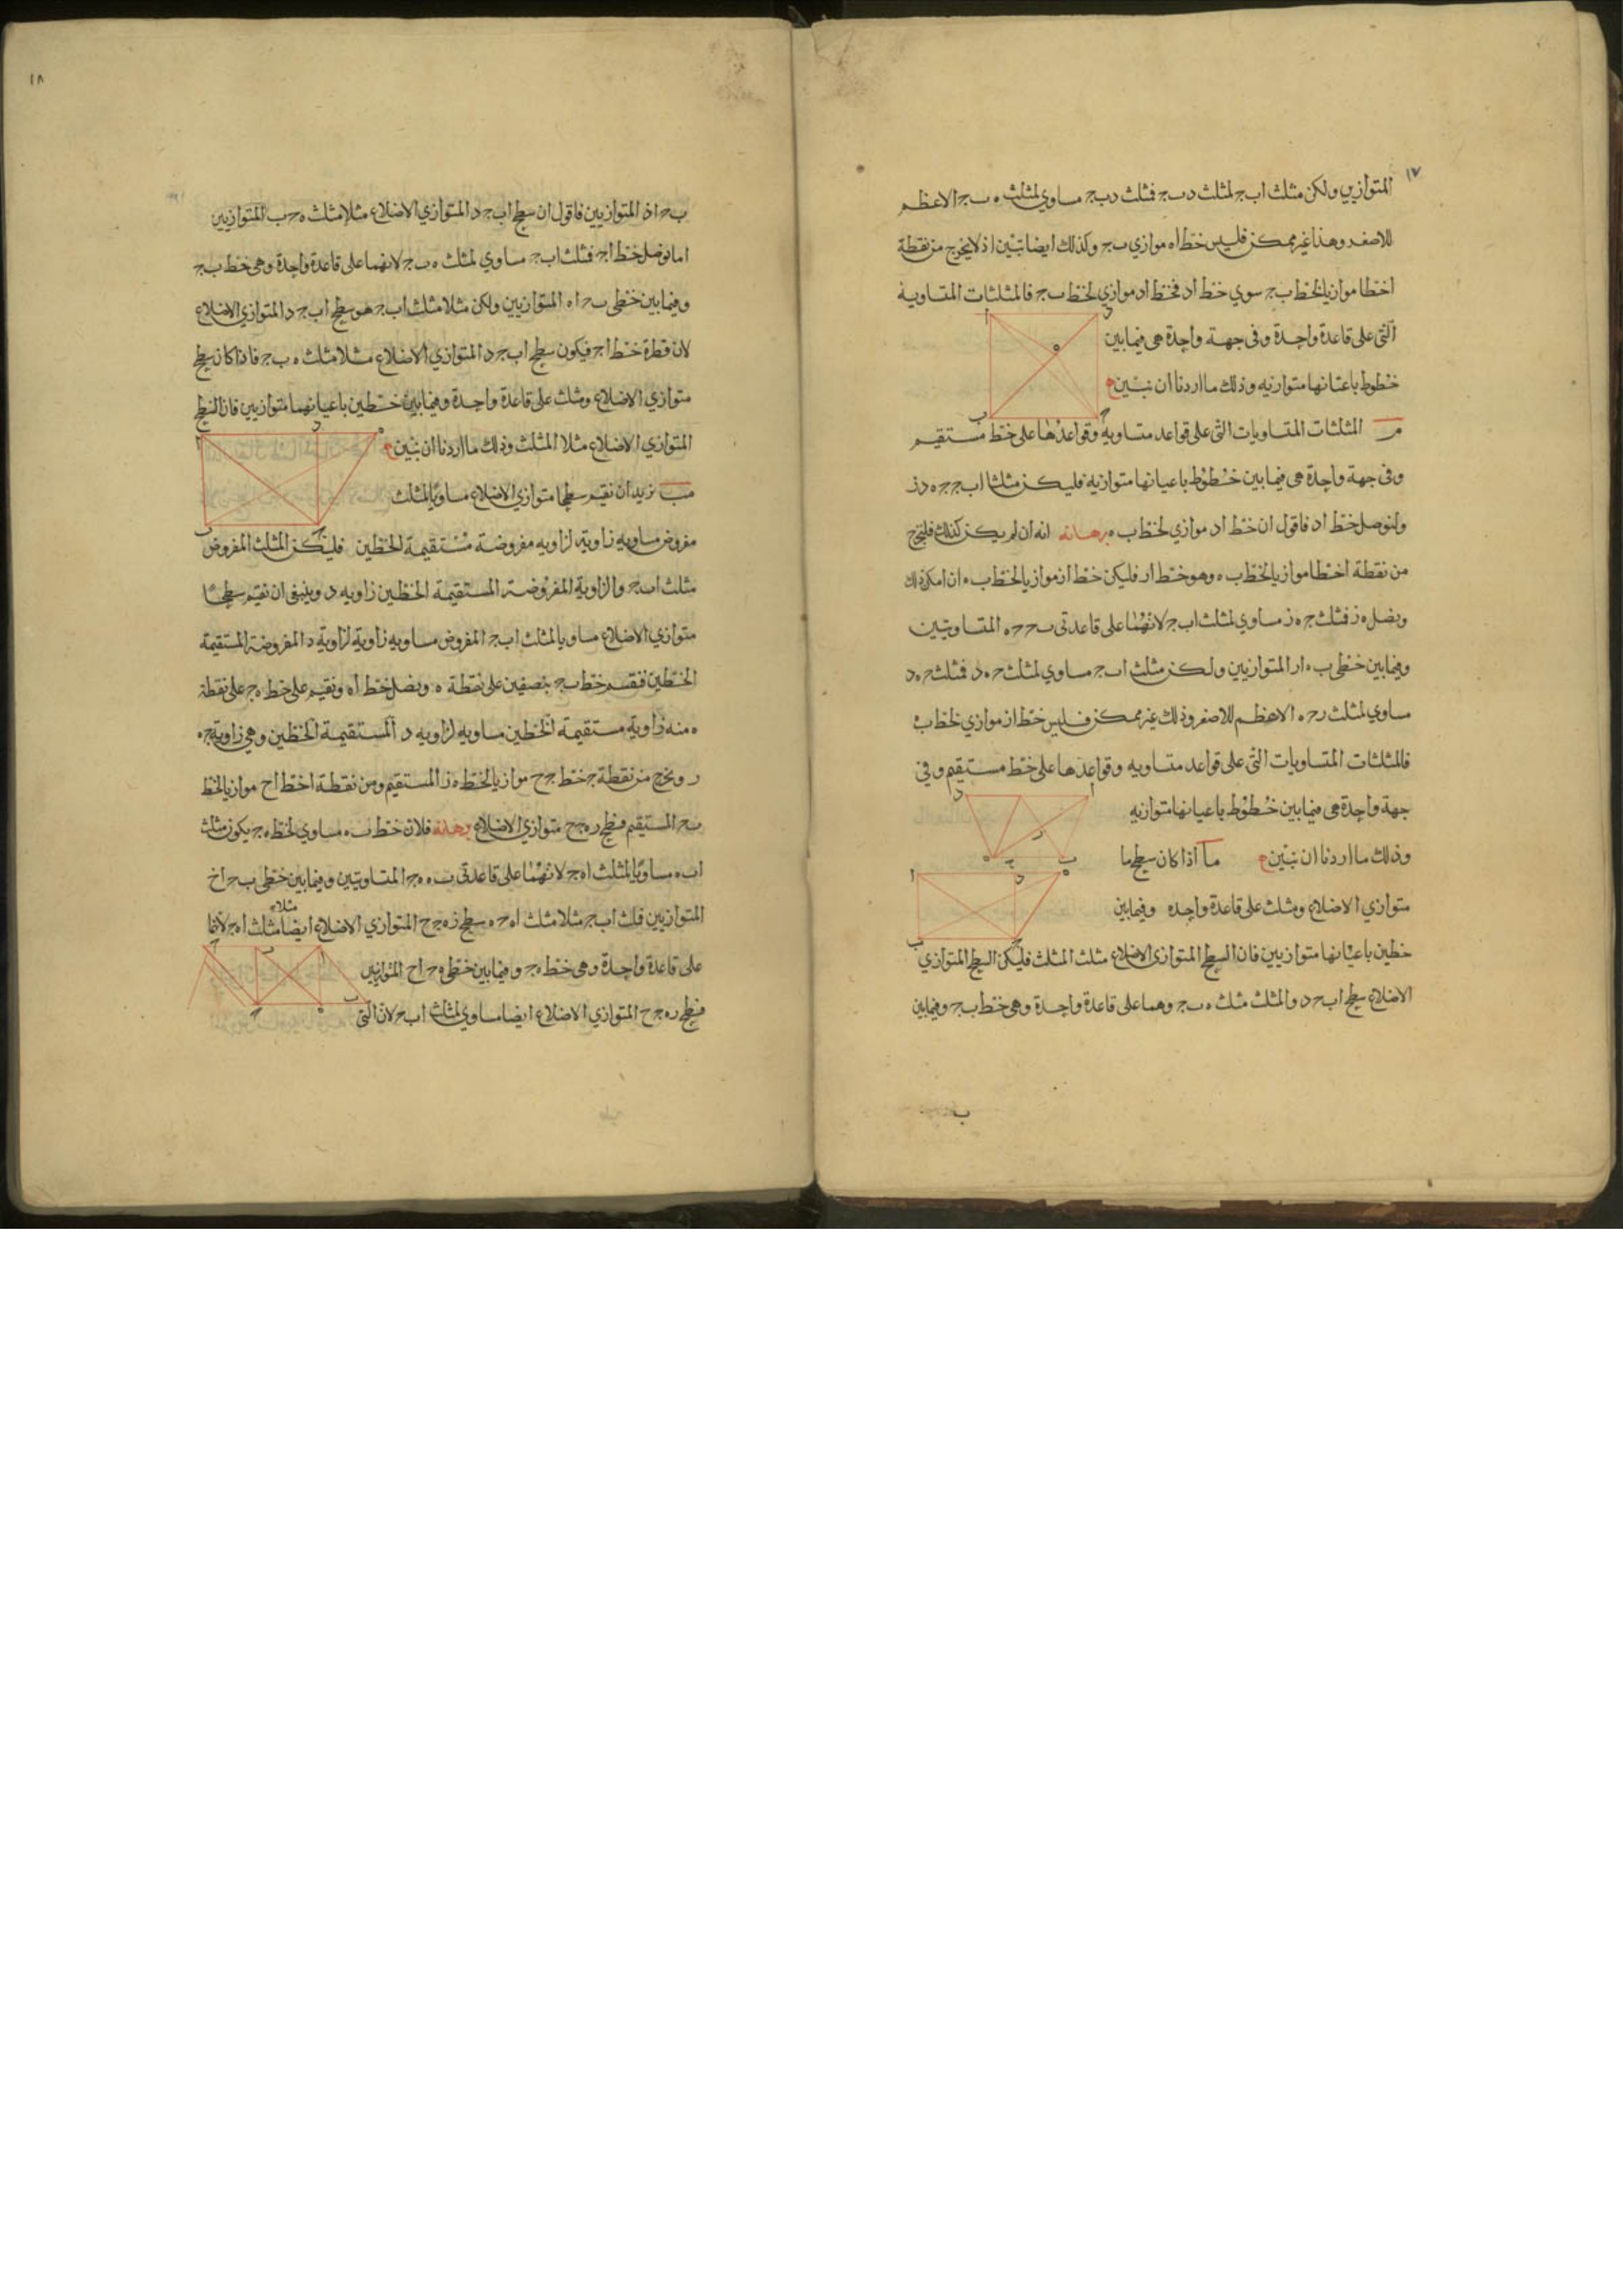 ١٧
المتوازيين ولكن مثلث اب ج لمثلث د ب ج فمثلث د ب ج مساوي لمثلث ه ب ج الاعظم
للاصغر وهذا غير ممكن فليس خط اه موازي ب ج وكذلك ايضا تبين اذ لا يخرج من نقطة
ا خطا موازيا لخط ب ج سوي خط اد فخط اد موازي لخط ب ج فالمثلثات المتساوية
التي على قاعدة واحدة وفى جهة واحدة هى فيما بين
خطوط باعيانها متوازيه وذلك ما اردنا ان نبين
م المثلثات المتساويات التى على قواعد متساويه وقواعدها على خط مستقيم
وفى جهة واحدة هى فيما بين خطوط باعيانها متوازية فليكن مثلثا اب ج ج ه د
ولنوصل خط اد فاقول ان خط اد موازي لخط ب ه برهانه انه ان لم يكن كذلك فليخرج
من نقطة ا خطا موازيا لخط ب ه وهو خط ار فليكن خط از موازيا لخط ب ه ان امكن ذلك
ونصل ه ز فمثلث ج ه ز مساوي لمثلث اب ج لانهما على قاعدتى ب ح ح ه المتساويتين
وفيما بين خطى ب ه ار المتوازيين ولكن مثلث اب ج مساوي لمثلث ح ه د فمثلث ح ه د
مساوي لمثلث ر ح ه الاعظم للاصغر وذلك غير ممكن فليس خط از موازي لخط ب ه
فالمثلثات المتساويات التى على قواعد متساويه وقواعدها على خط مستقيم وفي
جهة واحدة هى فيما بين خطوط باعيانها متوازيه
وذلك ما اردنا ان نبين ما اذا كان سطح ما
متوازي الاضلاع ومثلث على قاعدة واحده وفيما بين
خطين باعيانها متوازيين فان السطح المتوازى الاضلاع مثلث المثلث فليكن السطح المتوازي
الاضلاع سطح اب ح د والمثلث مثلث ه ب ج وهما على قاعدة واحدة وهى خط ب ج وفيما بين
ب
١٨
ب ح اذ المتوازيين فاقول ان سطح اب ج د المتوازي الاضلاع مثلا مثلث ه ح ب المتوازيين
اما نوصل خط اج فمثلث اب ج مساوي لمثلث ه ب ج لانهما على قاعدة واحدة وهى خط ب ج
وفيما بين خطى ب ح اه المتوازيين ولكن مثلا مثلث اب ج هو سطح اب ج د المتوازي الاضلاع
لان قطره خط اج فيكون سطح اب ج د المتوازي الاضلاع مثلا مثلث ه ب ج فاذا كان سطح
متوازي الاضلاع ومثلث على قاعدة واحدة وفيما بين خطين باعيانهما متوازيين فان السطح
المتوازي الاضلاع مثلا المثلث وذلك ما اردنا ان نبين
مب نريد ان نقيم سطحا متوازي الاضلاع مساويا لمثلث
مفروض مساويه زاوية لزاويه مفروضة مستقيمة الخطين فليكن المثلث المفروض
مثلث اب ج والزاوية المفروضة المستقيمة الخطين زاويه د وينبغى ان نقيم سطحا
متوازي الاضلاع مساويا لمثلث اب ج المفروض مساويه زاوية لزاوية د المفروضة المستقيمة
الخطين فنقسم خط ب ج بنصفين على نقطة ه ونصل خط اه ونقيم على خط ه ج على نقطة
ه منه زاوية مستقيمة الخطين مساويه لزاويه د المستقيمة الخطين وهي زاوية ج ه
ر ونخرج من نقطة ج خط ج ح موازيا لخط ه ز المستقيم ومن نقطة ا خط اح موازيا لخط
ب ح المستقيم فسطح ر ه ج ح متوازي الاضلاع برهانه فلان خط ب ه مساوي لخط ه ج يكون مثلث
اب ه مساويا لمثلث اه ج لانهما على قاعدتى ب ه ه ج المتساويتين وفيما بين خطى ب ح اح
المتوازيين فمثلث اب ج مثلا مثلث اه ح ه سطح ز ه ج ح المتوازي الاضلاع ايضا مثلاه مثلث اه ج لانها
على قاعدة واحدة وهى خط ه ج وفيما بين خطى ه ح اح المتوازيين
فسطح ر ه ج ح المتوازي الاضلاع ايضا مساوي لمثلث اب ح لان التى